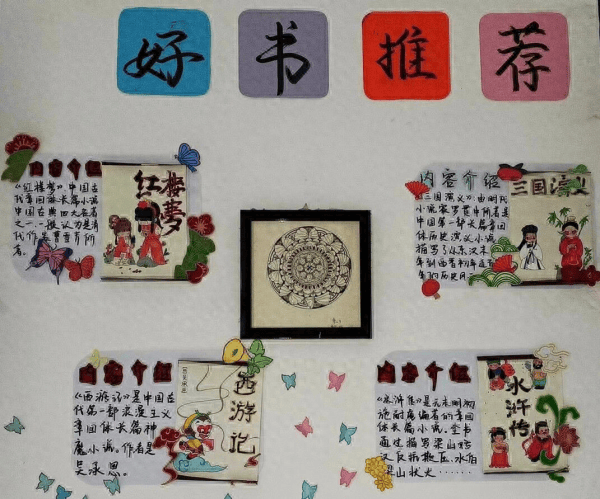 好书推荐
内容介绍
《红楼梦》，中国古
代章回体长篇小说
中国古典四大名著
之一
作者
红楼梦
内容介绍
《三国演义》，由明代
小说家罗贯中所著是
中国第一部长篇章回
体历史演义小说
描写了从东汉末
年到西晋初年近百
年的历史
三国演义
内容介绍
《西游记》是中国古
代第一部浪漫主义
章回体长篇神
魔小说。作者是
吴承恩。
西游记
内容介绍
《水浒传》是元末明初
施耐庵编著的章回
体长篇小说。全书
通过描写梁山好
汉反抗欺压、水泊
梁山状大······
水浒传